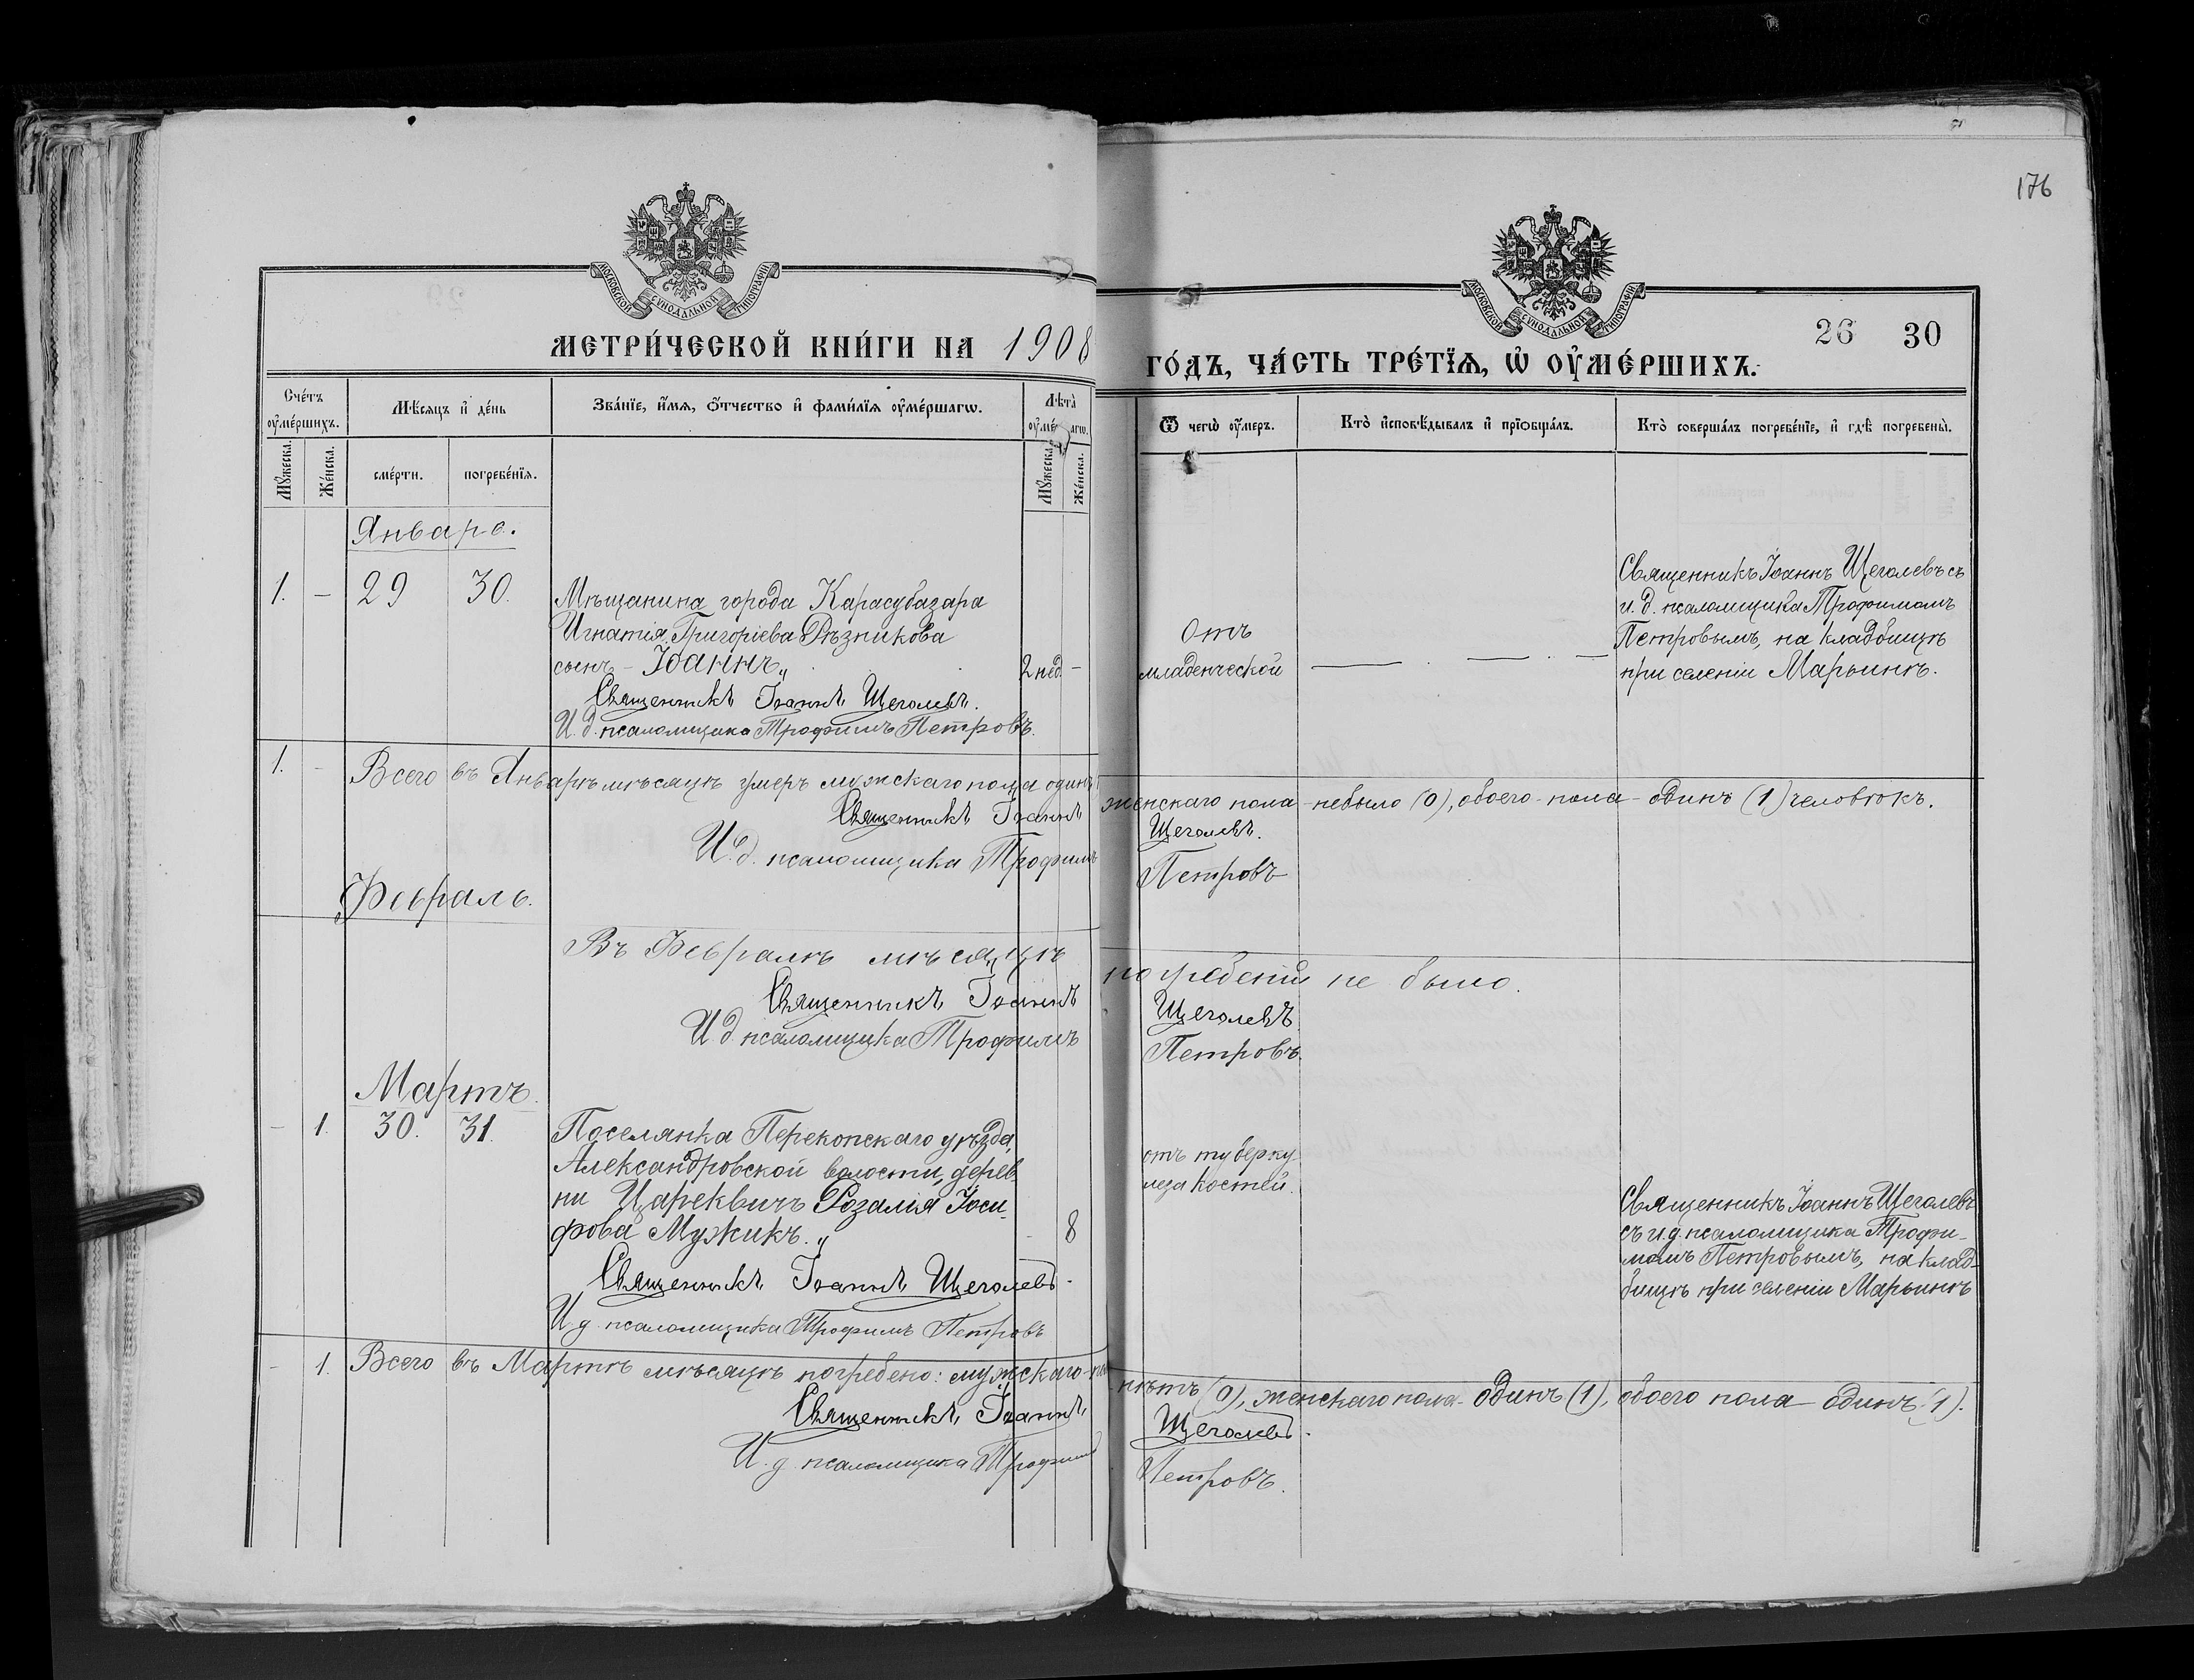 176
МОСКОВСКОЙ СѴНОДАЛЬНОЙ ТИПОГРАФІИ
МОСКОВСКОЙ СѴНОДАЛЬНОЙ ТИПОГРАФІИ
МЕТРИ́ЧЕСКОЙ КНИ́ГИ НА 1908
ГО́ДЪ, ЧА́СТЬ ТРЕ́ТЇѦ, Ѡ҆ ОУ҆МЕ́РШИХЪ.
26 30
Сче́тъ оу҆ме́ршихъ.
Мѣ́сѧцъ и҆ де́нь
Зва́нїе, и҆́мѧ, ѻ҆́тчество и҆ фами́лїѧ оу҆ме́ршагѡ.
Лѣта̀ оу҆ме́ршагѡ.
Ѿ чегѡ̀ оу҆́меръ.
Кто̀ и҆сповѣ́дывалъ и҆ прїѡбща́лъ.
Кто̀ соверша́лъ погребе́нїе, и҆ гдѣ̀ погребены̀.
Мꙋ́жеска.
Же́нска.
сме́рти.
погребе́нїѧ.
Мꙋ́жеска.
Же́нска.
Январь.
1. – 29 30.
Мѣщанина города Карасубазара
Игнатія Григоріева Рѣзникова
сынъ – Іоаннъ„
2 нед. –
Священникъ Іоаннъ Щеголевъ.
И. д. псаломщика Трофимъ Петровъ.
Отъ
младенческой
Священникъ Іоаннъ Щеголевъ съ
и. д. псаломщика Трофимомъ
Петровымъ, на кладбищѣ
при селеніи Марьинѣ.
1. – Всего въ Январѣ мѣсяцѣ умеръ мужскаго пола одинъ
женскаго пола – небыло (0), обоего – пола – одинъ (1) человѣкъ.
Священникъ Іоаннъ Щеголевъ.
И. д. псаломщика Трофимъ Петровъ
Февраль.
Въ Февралѣ мѣсяцѣ погребеній не было.
Священникъ Іоаннъ Щеголевъ
И. д. псаломщика Трофимъ Петровъ.
Мартъ.
– 1. 30. 31.
Поселянка Перекопскаго уѣзда,
Александровской волости, дерев-
ни Цареквичъ Розалія Іоси-
фова Мужикъ.„
– 8
Священникъ Іоаннъ Щеголевъ.
И. д. псаломщика Трофимъ Петровъ
отъ туберку
леза костей.
Священникъ Іоаннъ Щеголевъ
съ и. д. псаломщика Трофи-
момъ Петровымъ, на клад-
бищѣ при селеніи Марьинѣ
– 1. Всего въ Мартѣ мѣсяцѣ погребено: мужскаго
нѣтъ (0), женскаго пола – одинъ (1), обоего пола – одинъ (1).
Священникъ Іоаннъ Щеголевъ.
И. д. псаломщика Трофимъ Петровъ.